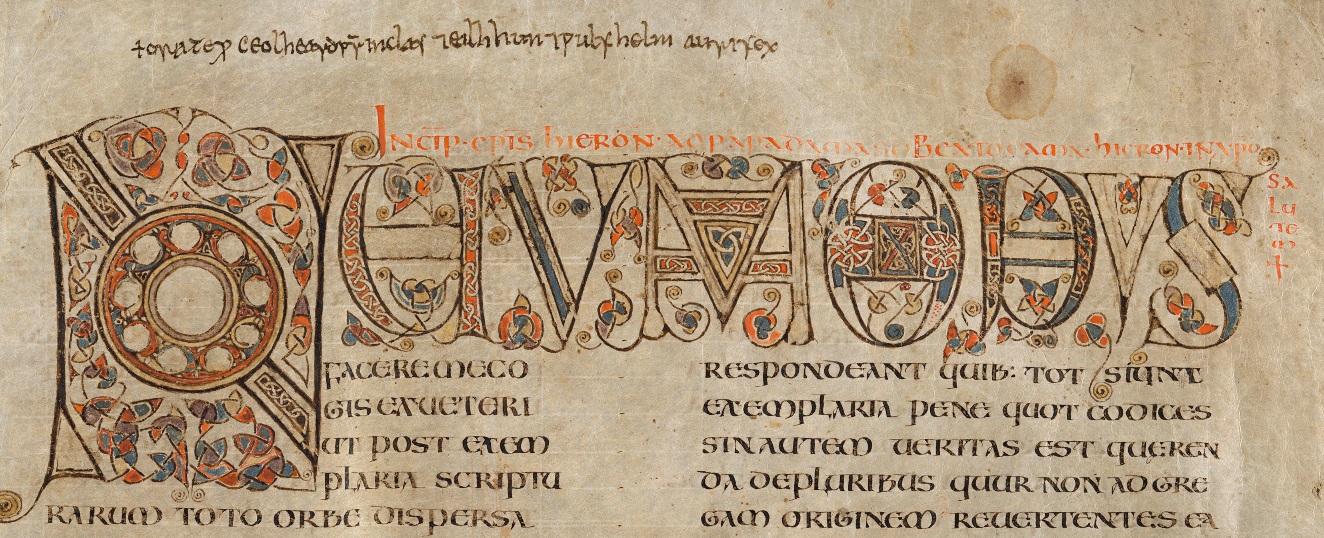 + orate p ceolheard pr niclas 7 ealhhun 7 wulfhelm aurifex
INCIP · EPIS HIERON · AD PAPA DAMASO BEATO DAMA · HIERON · IN XPO
SA
LU
TE
M
+
NOVUM OPVS
FACERE ME CO
GIS EX UETERI
UT POST EXEM
PLARIA SCRIPTU
RARUM TOTO ORBE DISPERSA
RESPONDEANT QUIB: TOT SIUNT
EXEMPLARIA PENE QUOT CODICES
SIN AUTEM UERITAS EST QUEREN
DA DE PLURIBUS QUUR NON AD GRE
GAM ORIGINEM REUERTENTES EA